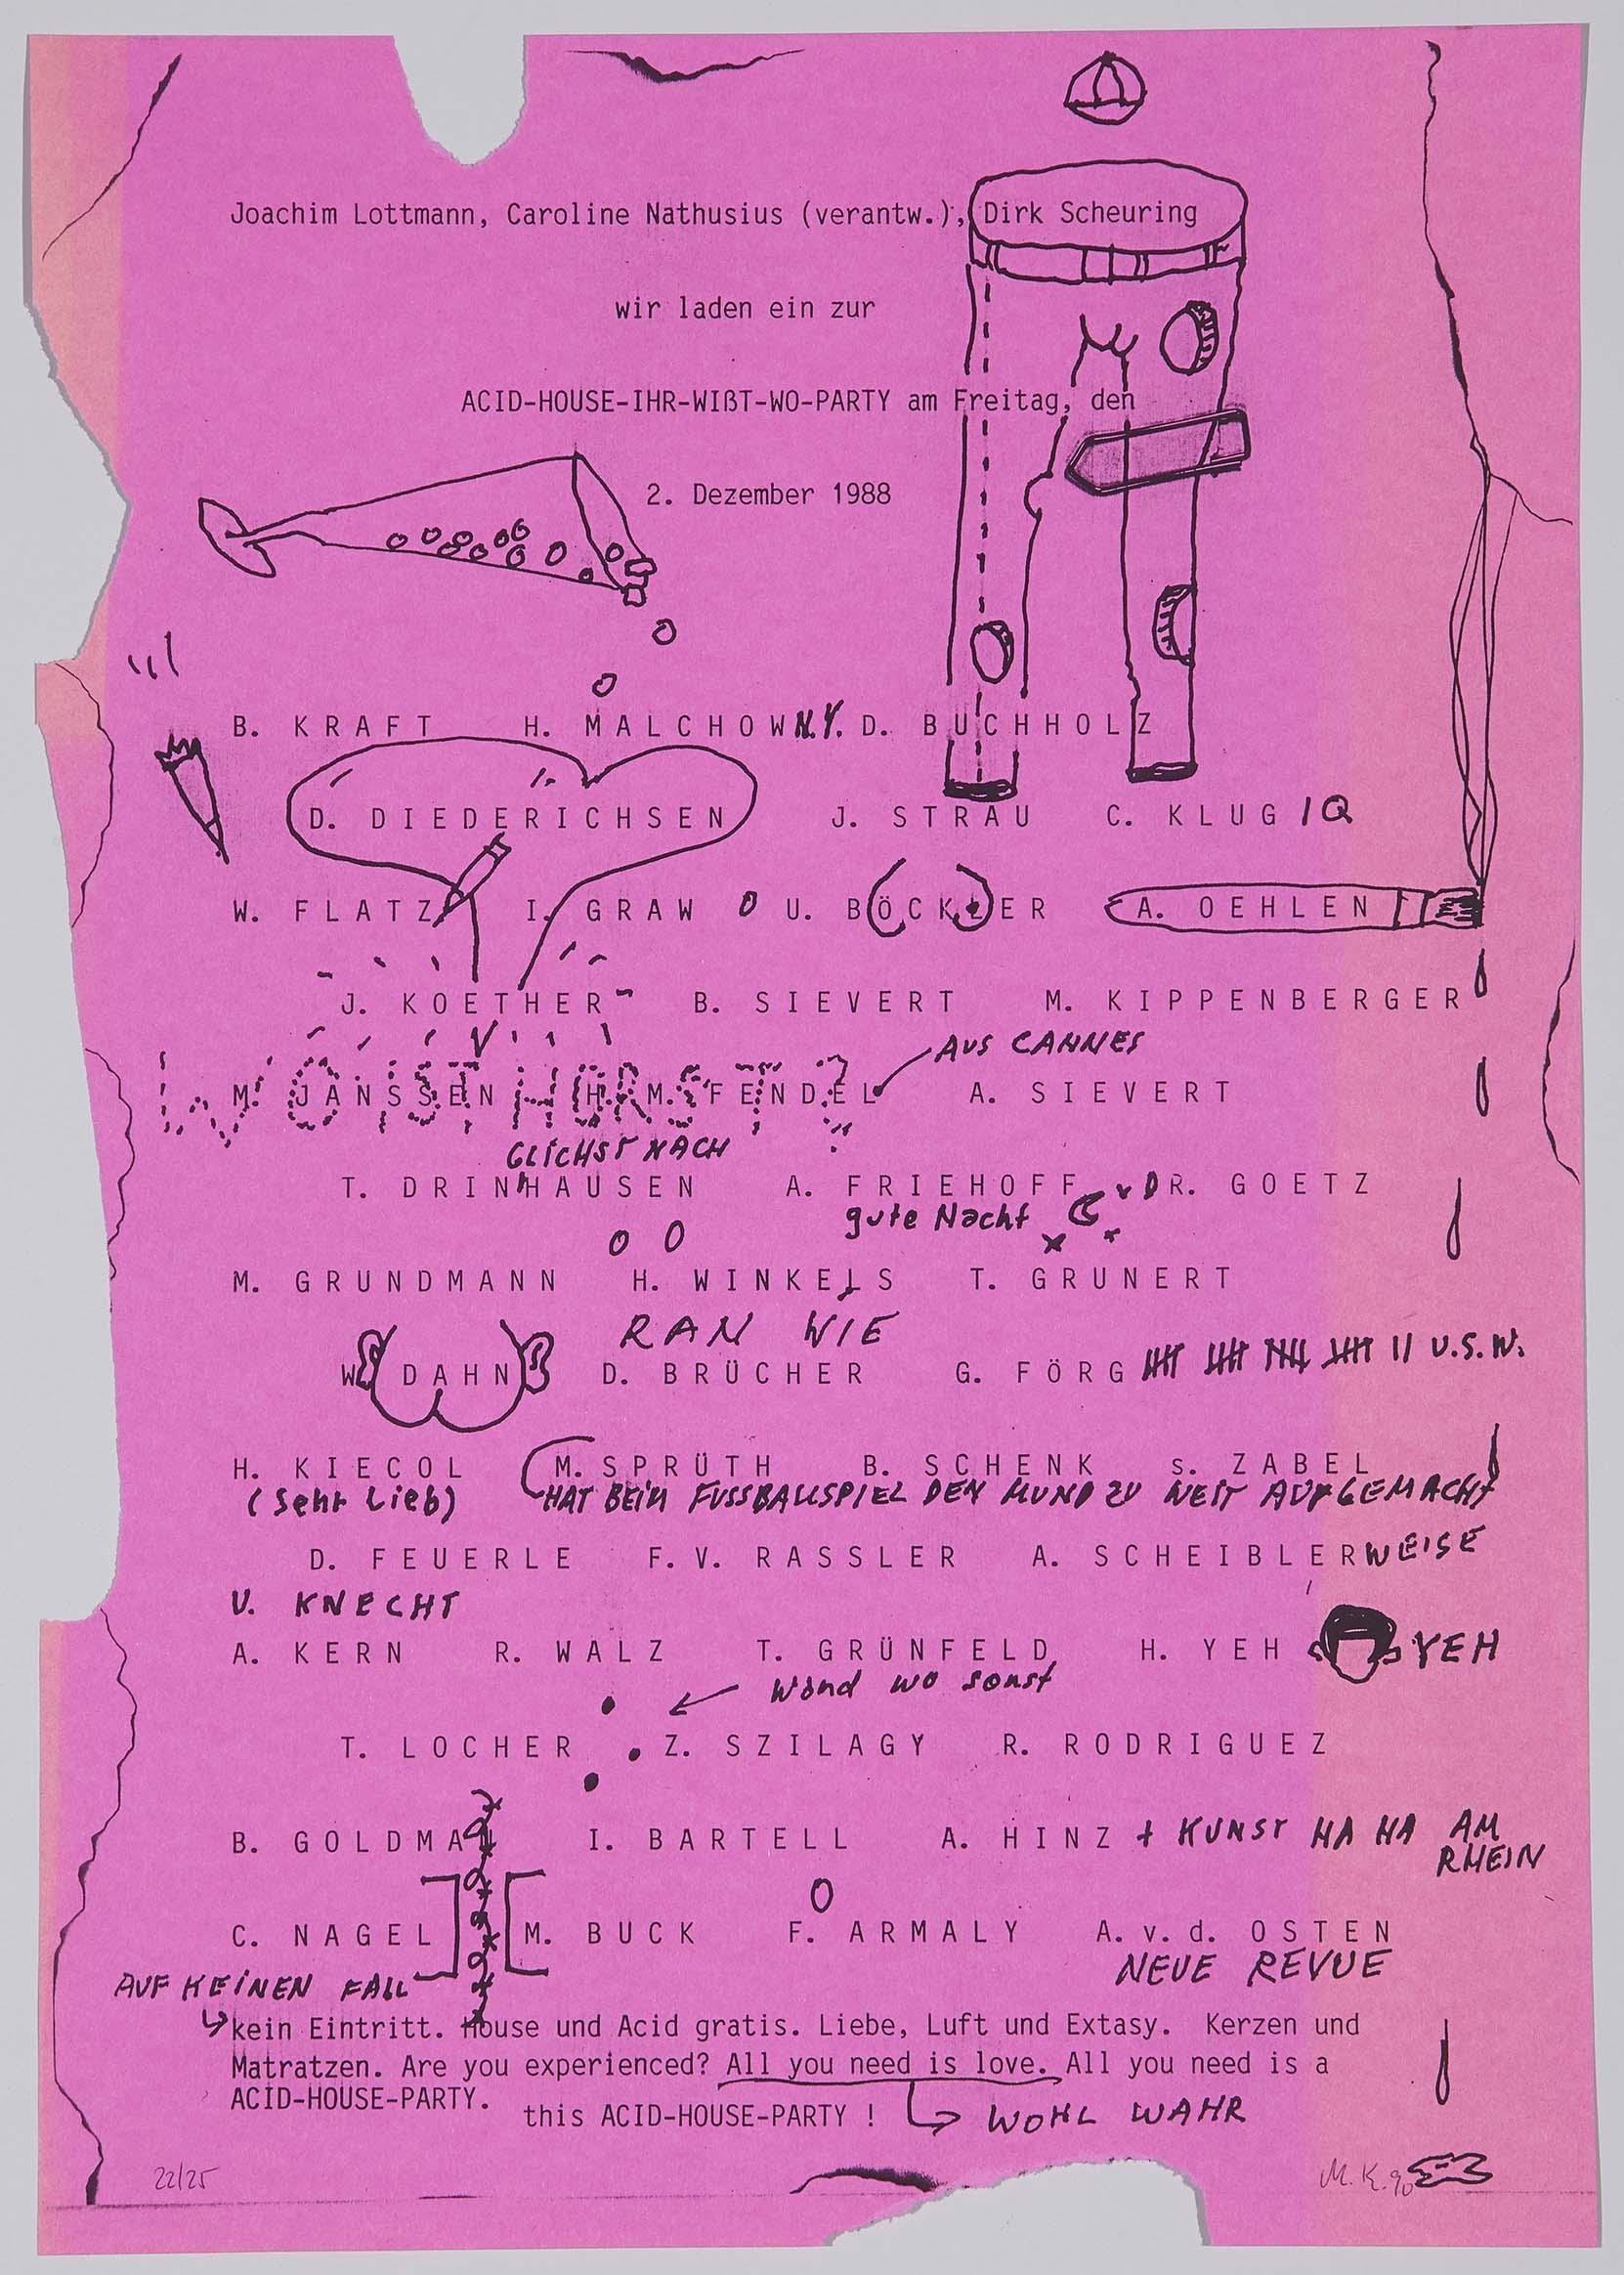 Joachim Lottmann, Caroline Nathusius (verantw.), Dirk Scheuring
wir laden ein zur
ACID-HOUSE-IHR-WIßT-WO-PARTY am Freitag, den
2. Dezember 1988
B. KRAFT H. MALCHOW N.Y. D. BUCHHOLZ
D. DIEDERICHSEN J. STRAU C. KLUG IQ
W. FLATZ I. GRAW U. BÖCKLER A. OEHLEN
J. KOETHER B. SIEVERT M. KIPPENBERGER
AUS CANNES
WO IST HORST?
M. JANSSEN H. M. FENDEL A. SIEVERT
GLICHST NACH
T. DRINHAUSEN A. FRIEHOFF DR. GOETZ
gute Nacht
M. GRUNDMANN H. WINKELS T. GRUNERT
RAN WIE
W. DAHN D. BRÜCHER G. FÖRG U.S.W.
H. KIECOL M. SPRÜTH B. SCHENK s. ZABEL
(Sehr Lieb) HAT BEIM FUSSBALLSPIEL DEN MUND ZU WEIT AUFGEMACHT
D. FEUERLE F.V. RASSLER A. SCHEIBLERWEISE
U. KNECHT
A. KERN R. WALZ T. GRÜNFELD H. YEH YEH
Wand wo sonst
T. LOCHER Z. SZILAGY R. RODRIGUEZ
B. GOLDMAN I. BARTELL A. HINZ + KUNST HA HA AM
RHEIN
C. NAGEL M. BUCK F. ARMALY A. v. d. OSTEN
AUF KEINEN FALL NEUE REVUE
kein Eintritt. House und Acid gratis. Liebe, Luft und Extasy. Kerzen und
Matratzen. Are you experienced? All you need is love. All you need is a
ACID-HOUSE-PARTY.
this ACID-HOUSE-PARTY ! WOHL WAHR
22/25 M.K. 90